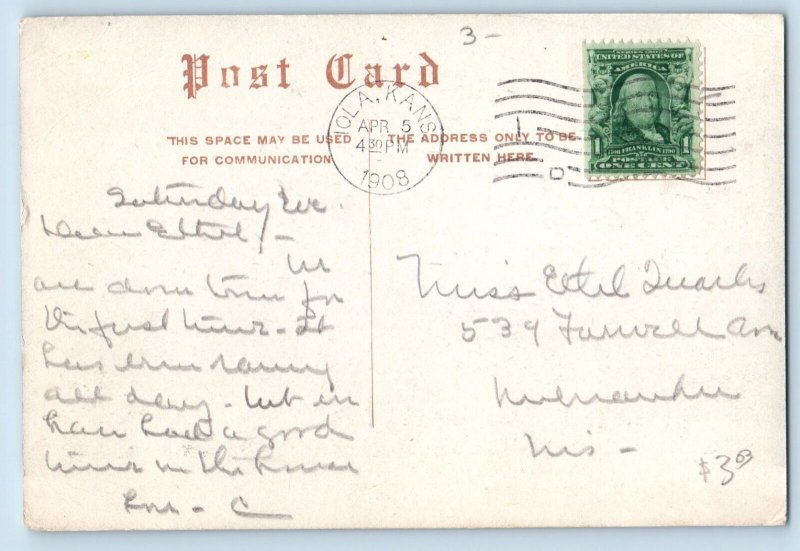 3-
Post Card
SERIES 1902
UNITED STATES OF
AMERICA
1 1
1706 FRANKLIN 1790
POSTAGE
ONE CENT
IOLA, KANS.
APR 5
4 30 PM
1908
1
D
THIS SPACE MAY BE USED
FOR COMMUNICATION
THE ADDRESS ONLY TO BE
WRITTEN HERE
Saturday Eve.
Dear Ethel/-
We
are down town for
the first time. It
has been rainy
all day. but we
have had a good
time in the house
Love - C
Miss Ethel Quarles
539 Farwell Ave
Milwaukee
Wis -
$3.63